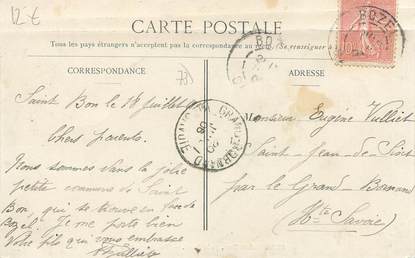 12 €
CARTE POSTALE
Tous les pays étrangers n'acceptent pas la correspondance au recto (se renseigner à la
CORRESPONDANCE
73)
ADRESSE
BOZEL
Saint Bon le 14 Juillet
Chers parents.
Nous sommes dans la jolie
petite commune de Saint
Bon, qui se trouve en face de
Bozel. Je me porte bien
Votre fils qui vous embrasse
Monsieur Eugène Vulliet
Saint-Jean-de-Sixt
par le Grand-Bornand
(Hte Savoie)